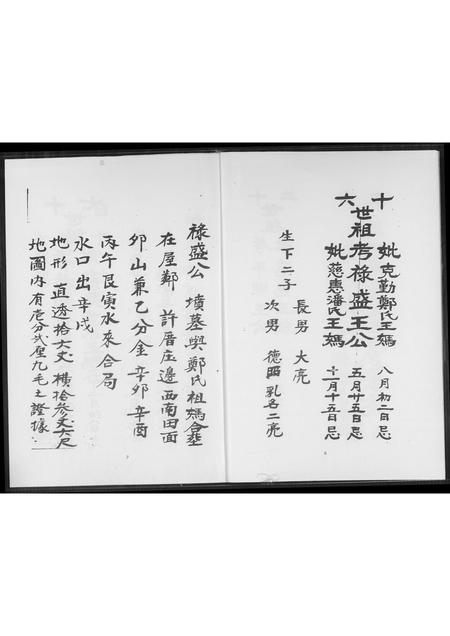 十六世祖考祿盛王公 五月廿五日忌
妣克勤鄭氏王媽 八月初二日忌
妣慈惠潘氏王媽 十一月十五日忌
生下二子 長男 大亮
次男 德 乳名二亮
祿盛公 墳墓與鄭氏祖媽合塟
在屋鄰 許厝庄邊西南田面
卯山兼乙分金辛卯辛酉
丙午艮寅水來合局
水口出辛戌
地形 直透拾六丈 橫拾參丈六尺
地圖內有 分弍厘九毛之證據